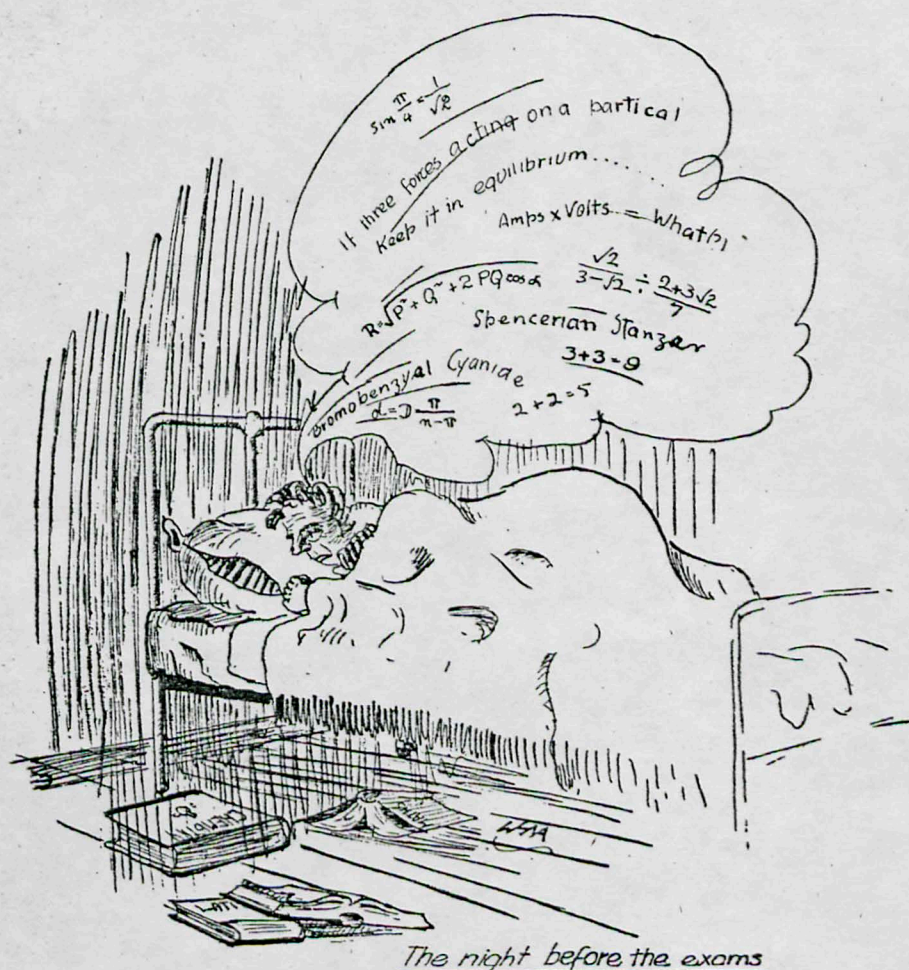 sin π/4 = 1/√2
If three forces acting on a partical
Keep it in equilibrium......
Amps x Volts = What?!
R=√P² + Q² + 2 PQ cos α
√2/3-√2 ÷ 2+3√2/7
Spencerian Stanzer
3+3=9
Bromobenzyal Cyaniae
α = D π/n-π
2+2=5
The night before the exams